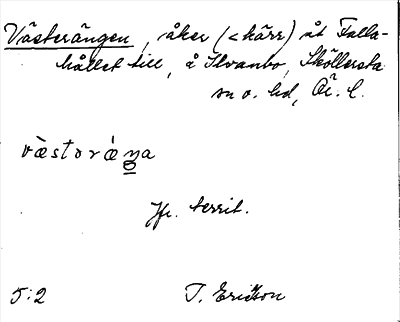 Västerängen, åker (<kärr) åt Falla-
hållet till, å Ilvanbo, Sköllersta
sn o. hd, Ör. l.
vàstəráŋa
Jfr. territ.
5:2 T. Ericsson